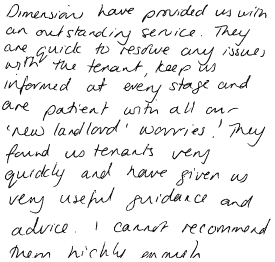 Dimension have provided us with
an outstanding service. They
are quick to resolve any issues
with the tenant, keep us
informed at every stage and
are patient with all our
'new landlord' worries! They
found us tenants very
quickly and have given us
very useful guidance and
advice. I cannot recommend
them highly enough